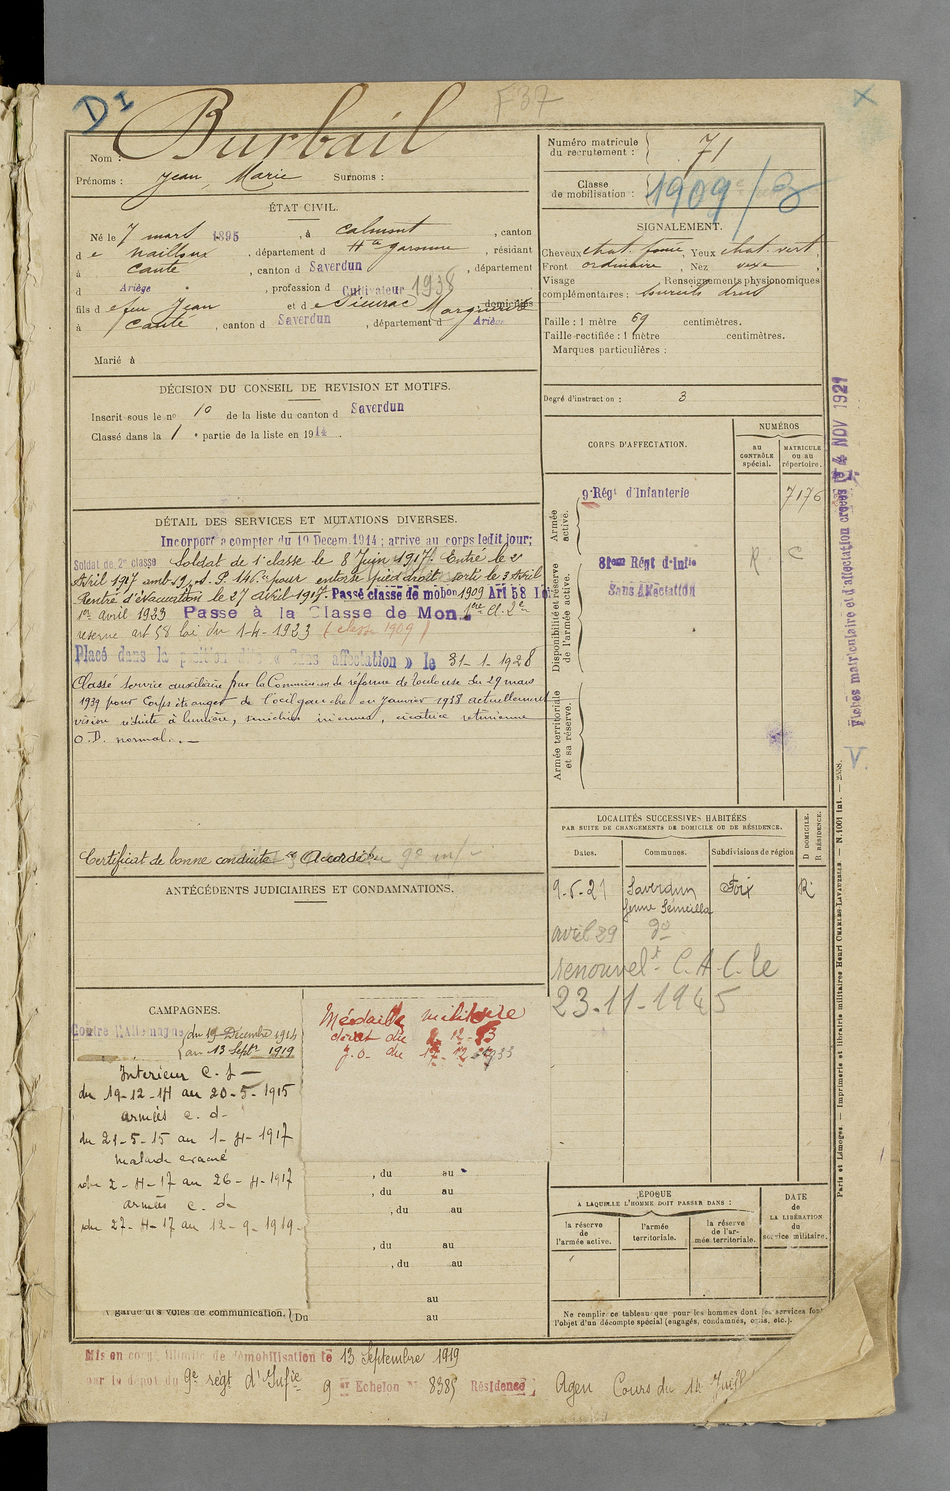 D I
F 37
X
Burbail
Nom :
Prénoms : Jean, Marie Surnoms :
ÉTAT CIVIL.
Né le 7 mars 1895, à Calmont, canton
de Nailloux, département d Hte Garonne, résidant
à Canté, canton d Saverdun, département
d Ariège, profession d Cultivateur 1938
fils de feu Jean et de Sieurac Marguerite domiciliés
à Canté, canton d Saverdun, département d Ariège
Marié à
DÉCISION DU CONSEIL DE REVISION ET MOTIFS.
Inscrit sous le no 10 de la liste du canton d Saverdun
Classé dans la 1 e partie de la liste en 1914.
DÉTAIL DES SERVICES ET MUTATIONS DIVERSES.
Incorporé à compter du 19 Decem. 1914 ; arrivé au corps ledit jour;
Soldat de 2e classe Soldat de 1e classe le 8 Juin 1917. Entré le 2
Avril 1917 pour entorse pied droit sorti le 3 Avril
Rentré d'évacuation le 27 avril 1917. Passé classe de mobon 1909 Art 58 Loi
1er avril 1923 Passé à la Classe de Mon.
réserve art 58 loi du 1-4-1923 (classe 1909)
Placé dans la position dite « Sans affectation » le 31-1-1928
Classé service auxiliaire par la Commission de réforme de Toulouse du 29 mars
1939 pour Corps étranger de l'œil gauche en janvier 1938 actuellement
vision réduite à lumière, cicatrice rétinienne
O.D. normal. —
Certificat de bonne conduite Accordé
ANTÉCÉDENTS JUDICIAIRES ET CONDAMNATIONS.
CAMPAGNES.
Contre l'Allemagne du 19 Décembre 1914
au 13 Septre 1919
Interieur C. S —
du 19-12-14 au 20-5-1915
armées c. d-
du 21-5-15 au 1-4-1917
malade évacué
du 2-4-17 au 26-4-1917
armées c. d-
du 27-4-17 au 12-9-1919-
Médaille militaire
décret du
J.O. du
, du au
, du au
, du au
, du au
, du au
au
garde des voies de communication. Du au
Mis en congé illimité de démobilisation le 13 Septembre 1919
par le dépôt du 9e régt d'Infie 9 er Echelon No 8385 Résidence Agen Cours du 14 Juill
Numéro matricule
du recrutement : 71
Classe
de mobilisation : 1909/3
SIGNALEMENT.
Cheveux chat. foncé, Yeux chat. vert,
Front ordinaire, Nez vexe,
Visage , Renseignements physionomiques
complémentaires : Sourcils droit
Taille : 1 mètre 69 centimètres.
Taille rectifiée : 1 mètre centimètres.
Marques particulières :
Degré d'instruction : 3
CORPS D'AFFECTATION.
NUMÉROS
AU CONTRÔLE spécial.
MATRICULE ou au répertoire.
Armée active.
9e Régt d'Infanterie 7176
Disponibilité et réserve de l'armée active.
81eme Régt d'Infie R C
Sans Affectation
Armée territoriale et sa réserve.
LOCALITÉS SUCCESSIVES HABITÉES
PAR SUITE DE CHANGEMENTS DE DOMICILE OU DE RÉSIDENCE.
D DOMICILE. R RÉSIDENCE.
Dates. Communes. Subdivisions de région
9-5-21 Saverdun Foix R
avril 29 do
renouvelt C.A.C. le
23-11-1945
ÉPOQUE
A LAQUELLE L'HOMME DOIT PASSER DANS :
la réserve de l'armée active.
l'armée territoriale.
la réserve de l'armée territoriale.
DATE de LA LIBÉRATION du service militaire.
Ne remplir ce tableau que pour les hommes dont les services font
l'objet d'un décompte spécial (engagés, condamnés, omis, etc.).
Fiches matriculaire et d'affectation créées le 4 NOV 1921
V
Paris et Limoges. — Imprimerie et librairie militaires Henri CHARLES-LAVAUZELLE. — N. 1001 Int. — 2558.